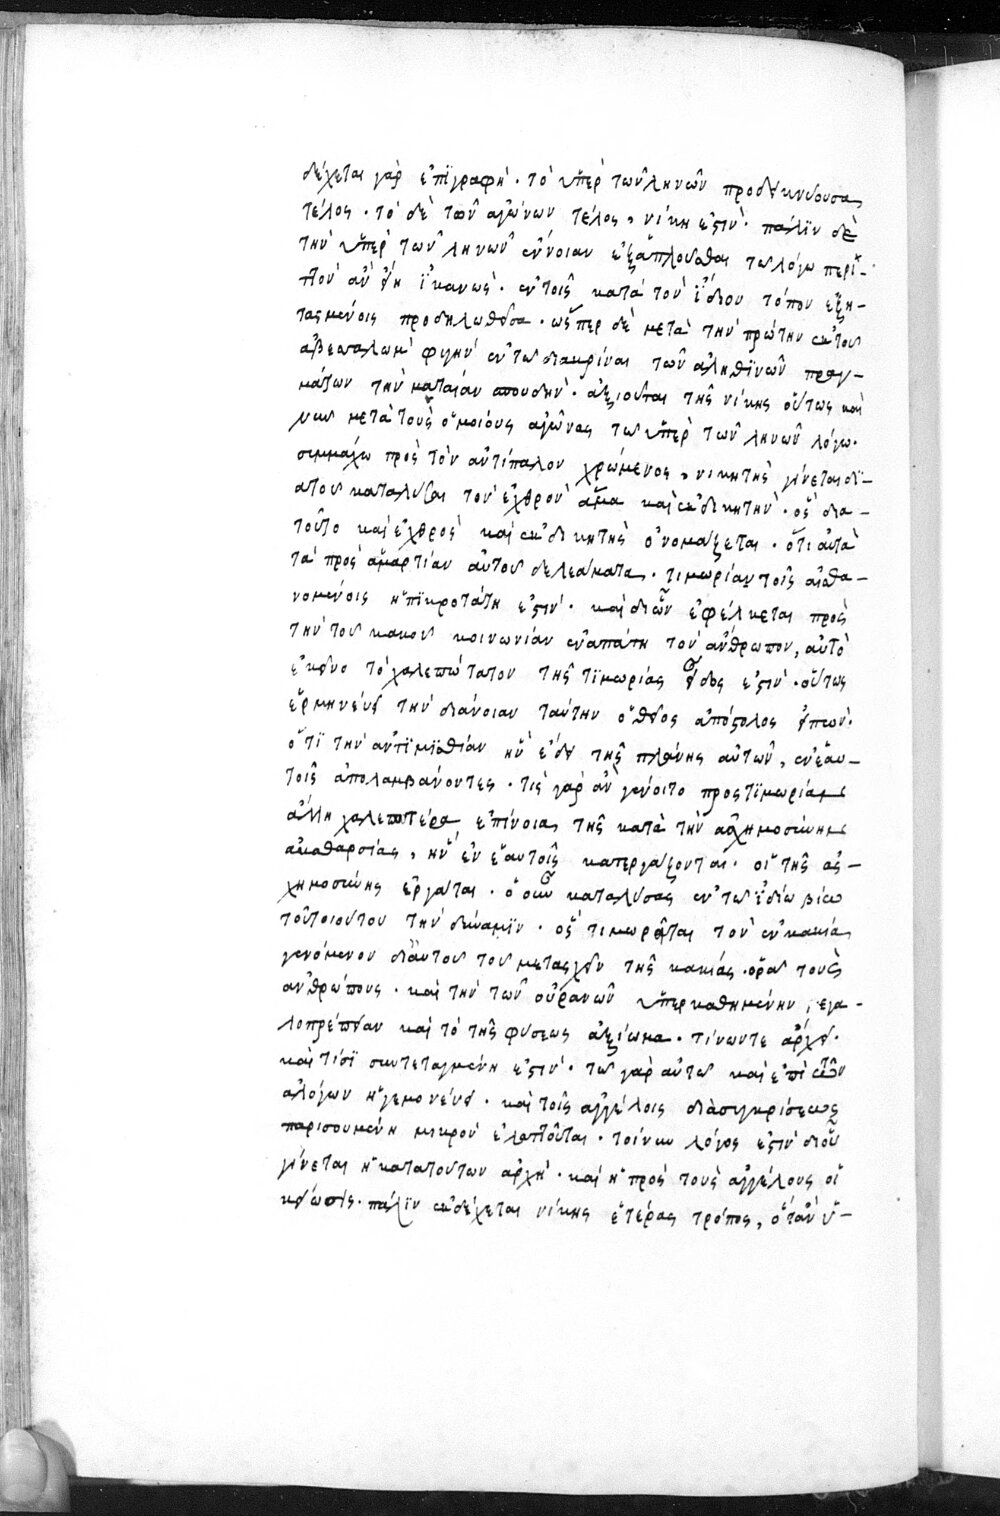 δέχεται γὰρ ἐπιγραφὴ· τὸ ὑπὲρ τῶν ληνῶν προδεικνύουσα
τέλος· τὸ δὲ τῶν ἀγώνων τέλος, νίκη ἐστὶν· πάλϊν δὲ
τὴν ὑπὲρ τῶν ληνῶν ἔννοιαν ἐξαπλοῦσθαι τῶ λόγω περι
ὸν ἂν εἴη ἱκανῶς· ἐν τοῖς κατὰ τὸν ἴδιον τόπον ἐξη-
τασμένοις προδηλωθεῖσα· ὥσπερ δὲ μετὰ τὴν πρώτην ἐκ τοῦ
ἀβεσσαλὼμ φυγὴν ἐν τῶ διακρίναι τῶν ἀληθϊνῶν πραγ-
μάτων τὴν ματαίαν σπουδὴν· ἀξιοῦται τῆς νίκης οὕτως καὶ
νῦν μετὰ τοὺς ὁμοίους ἀγῶνας τῶ ὑπὲρ τῶν ληνῶν λόγω·
συμμάχω πρὸς τὸν ἀντίπαλον χρώμενος, νικητὴς γίνεται δϊ-
ὰ τοῦ καταλῦσαι τὸν ἐχθρὸν ἅμα καὶ ἐκδικητὴν· ὃς δια-
τοῦτο καὶ ἐχθρὸς καὶ ἐκδικητὴς ὀνομάζεται· ὅτι αὐτὰ
τὰ πρὸς ἁμαρτίαν αὐτοῦ δελεάματα· τιμωρίαν τοῖς αἰσθα-
νομένοις ἡ πϊκροτάτη ἐστὶν· καὶ διὧν ἐφέλκεται πρὸς
τὴν τοῦ κακοῦ κοινωνίαν ἐναπάτη τὸν ἄνθρωπον, αὐτὸ
ἐκεῖνο τὸ χαλεπώτατον τῆς τϊμωρίας εἶδος ἐστὶν· οὕτως
ἑρμηνεύει τὴν διάνοιαν ταύτην ὁ θεῖος ἀπόστολος εἰπὼν·
ὅτϊ τὴν ἀντϊμϊσθίαν ἣν ἔδει τῆς πλάνης αὐτῶν, ἐν ἑαυ-
τοῖς ἀπολαμβάνοντες· τὶς γὰρ ἂν γένοιτο πρὸς τϊμωρίαν
ἄλλη χαλεπωτέρα ἐπίνοια, τῆς κατὰ τὴν ἀσχημοσύνην
ἀκαθαρσίας, ἣν ἐν ἑαυτοῖς κατεργάζονται· οἱ τῆς ἀσ-
χημοσύνης ἐργάται· ὁ οὖν καταλύσας ἐν τῶ ἰδίω βίω
τοῦ τοιούτου τὴν δύναμϊν· ὃς τιμωρεῖται τὸν ἐν κακία
γενόμενον διαυτοῦ τοῦ μετασχεῖν τῆς κακίας· ὁρᾶ τοὺς
ἀνθρώπους· καὶ τὴν τῶν οὐρανῶν ὑπερκαθημένην, εγα-
λοπρέπειαν καὶ τὸ τῆς φύσεως ἀξίωμα· τίνων τε ἄρχει·
καὶ τίσϊ συντεταγμένη ἐστὶν· τῶ γὰρ αὐτῶ καὶ ἐπὶ τῶν
ἀλόγων ἡγεμονεύει· καὶ τοῖς ἀγγέλοις διὰ συγκρίσεως
παρισουμένη μικρὸν ἐλαττοῦται· τοίνυν λόγος ἐστὶν διοῦ
γίνεται ἡ κατὰ τούτων ἀρχὴ· καὶ ἡ πρὸς τοὺς ἀγγέλους οἰ
κείωσις· πάλϊν ἐκδέχεται νίκης ἑτέρας τρόπος, ὅταν ὑ-